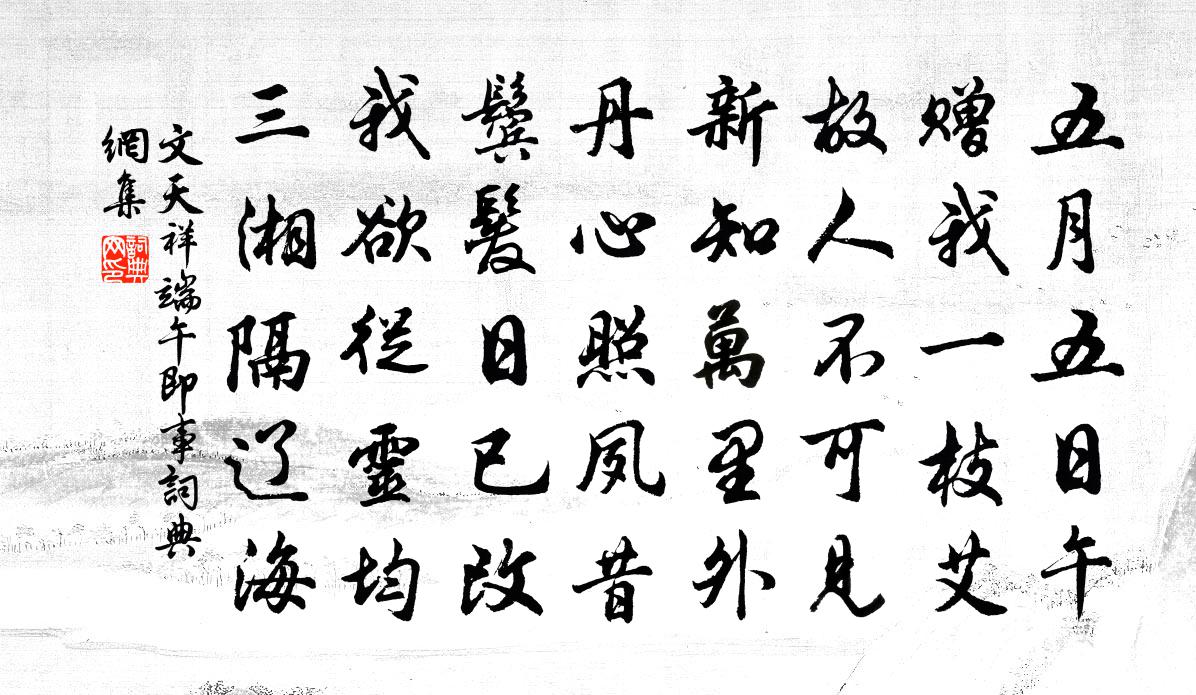 五月五日午
赠我一枝艾
故人不可見
新知萬里外
丹心照夙昔
鬢髮日已改
我欲從靈均
三湘隔辽海
文天祥端午即事詞典
網集
詞典
网印